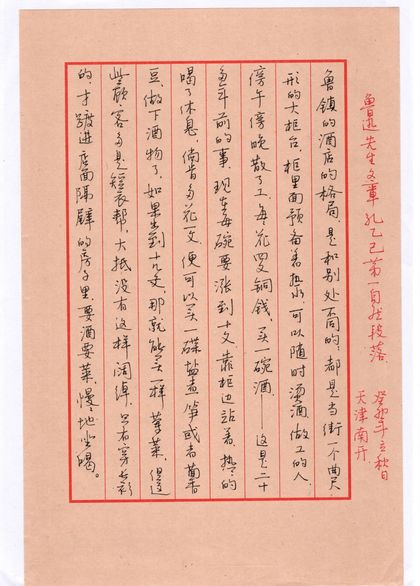 鲁迅先生文章孔乙己第一自然段落
癸卯年立秋日
天津南开
鲁镇的酒店的格局,是和别处不同的:都是当街一个曲尺
形的大柜台,柜里面预备着热水,可以随时烫酒。做工的人,
傍午傍晚散了工,每花四文銅錢,买一碗酒——这是二十
多年前的事,现在每碗要涨到十文,靠柜边站着,热々的
喝了休息,倘肯多花一文,便可以买一碟盐煮笋或者茴香
豆,做下酒物了,如果出到十几文,那就能买一样荤菜,但这
些顾客多是短衣帮,大抵没有这样阔绰,只有穿长衫
的,才踱进店面隔壁的房子里,要酒要菜,慢々地坐喝。